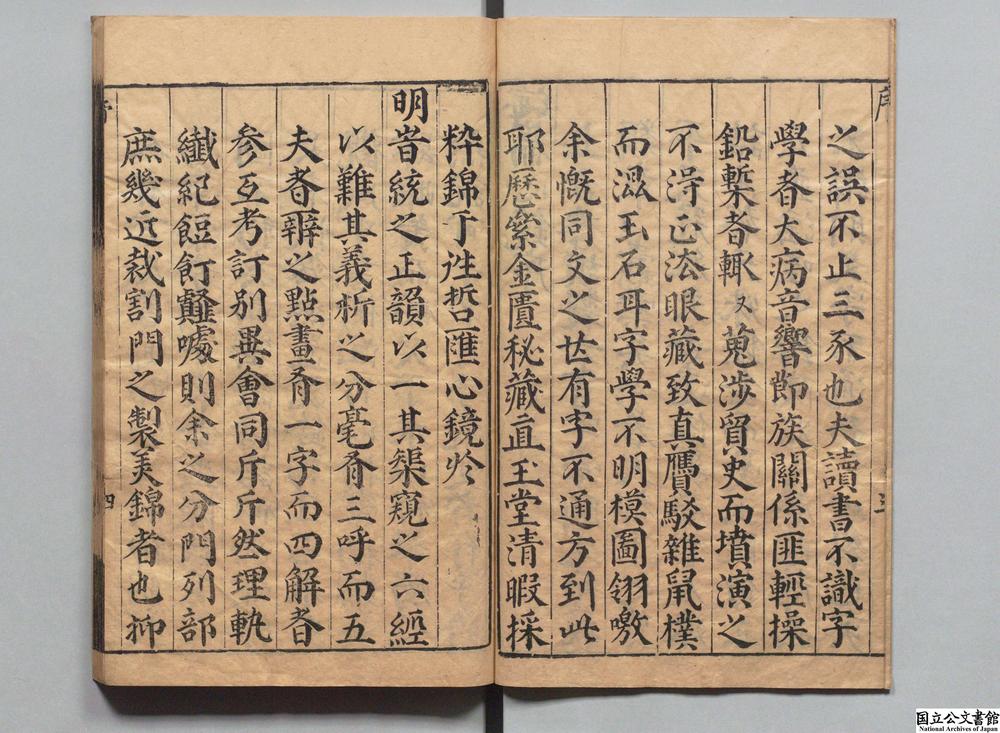 之誤不止三豕也夫讀書不識字
學者大病音響節族關係匪輕操
鉛槧者輒又蒐涉貿史而墳演之
不淂正法眼藏致真贋駁雜鼠樸
而混玉石耳字學不明模圖翎噭
余慨同文之世有字不通方到此
耶歷紫金匱秘藏直玉堂清暇採
粹錦于往哲匯心鏡于
明昔統之正韻以一其榘窺之六經
以難其義析之分毫有三呼而五
夫者辯之點畫有一字而四解者
参互考訂別異會同斤斤然理軌
纖紀飣齏噱則余之分門列部
庶幾近裁割門之製美錦者也抑
四
国立公文書館
National Archives of Japan